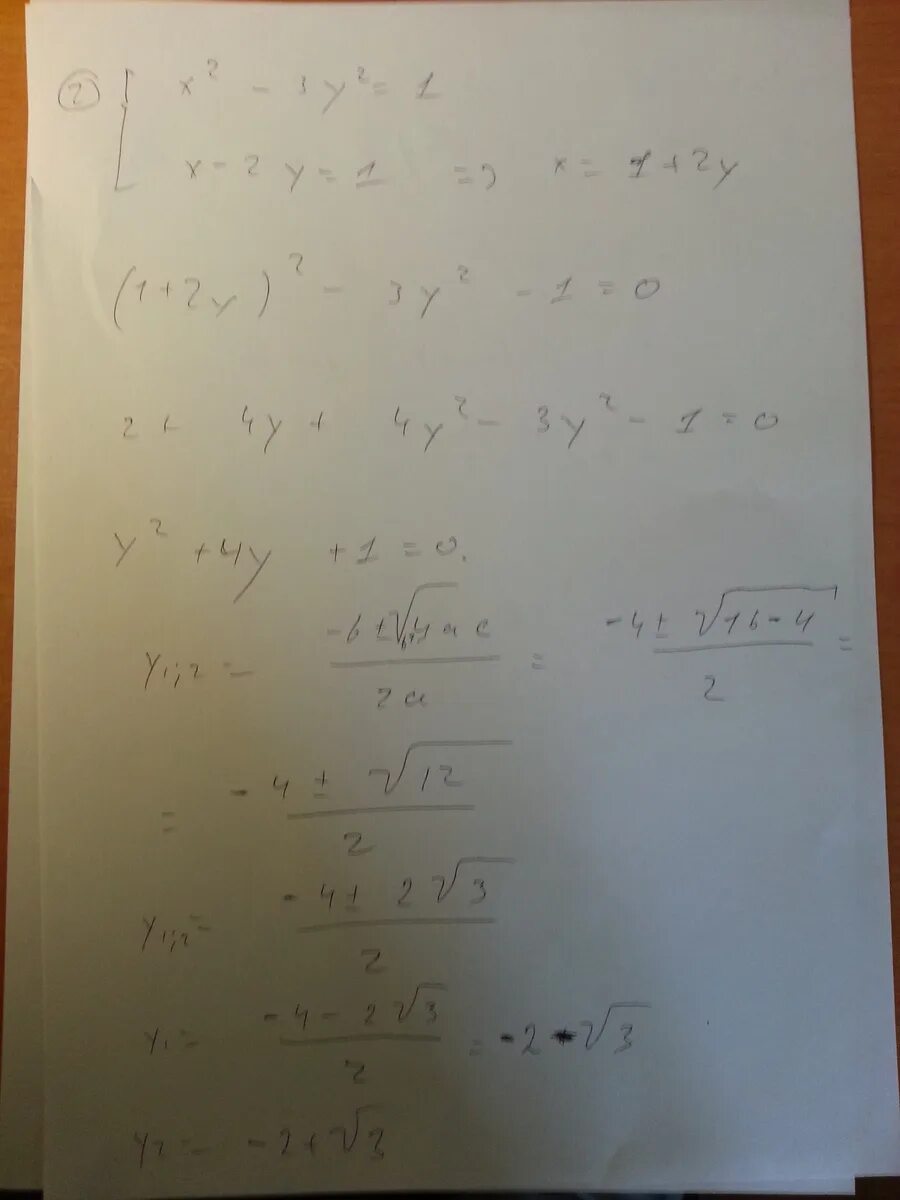 ② { x² - 3y² = 1
x - 2y = 1 => x = 1 + 2y
(1+2y)² - 3y² - 1 = 0
2 + 4y + 4y² - 3y² - 1 = 0
y² + 4y + 1 = 0.
y₁;₂ = (-b ± √(b²-4ac)) / 2a = (-4 ± √(16-4)) / 2 =
= (-4 ± √12) / 2
y₁;₂ = (-4 ± 2√3) / 2
y₁ = (-4 - 2√3) / 2 = -2 - √3
y₂ = -2 + √3